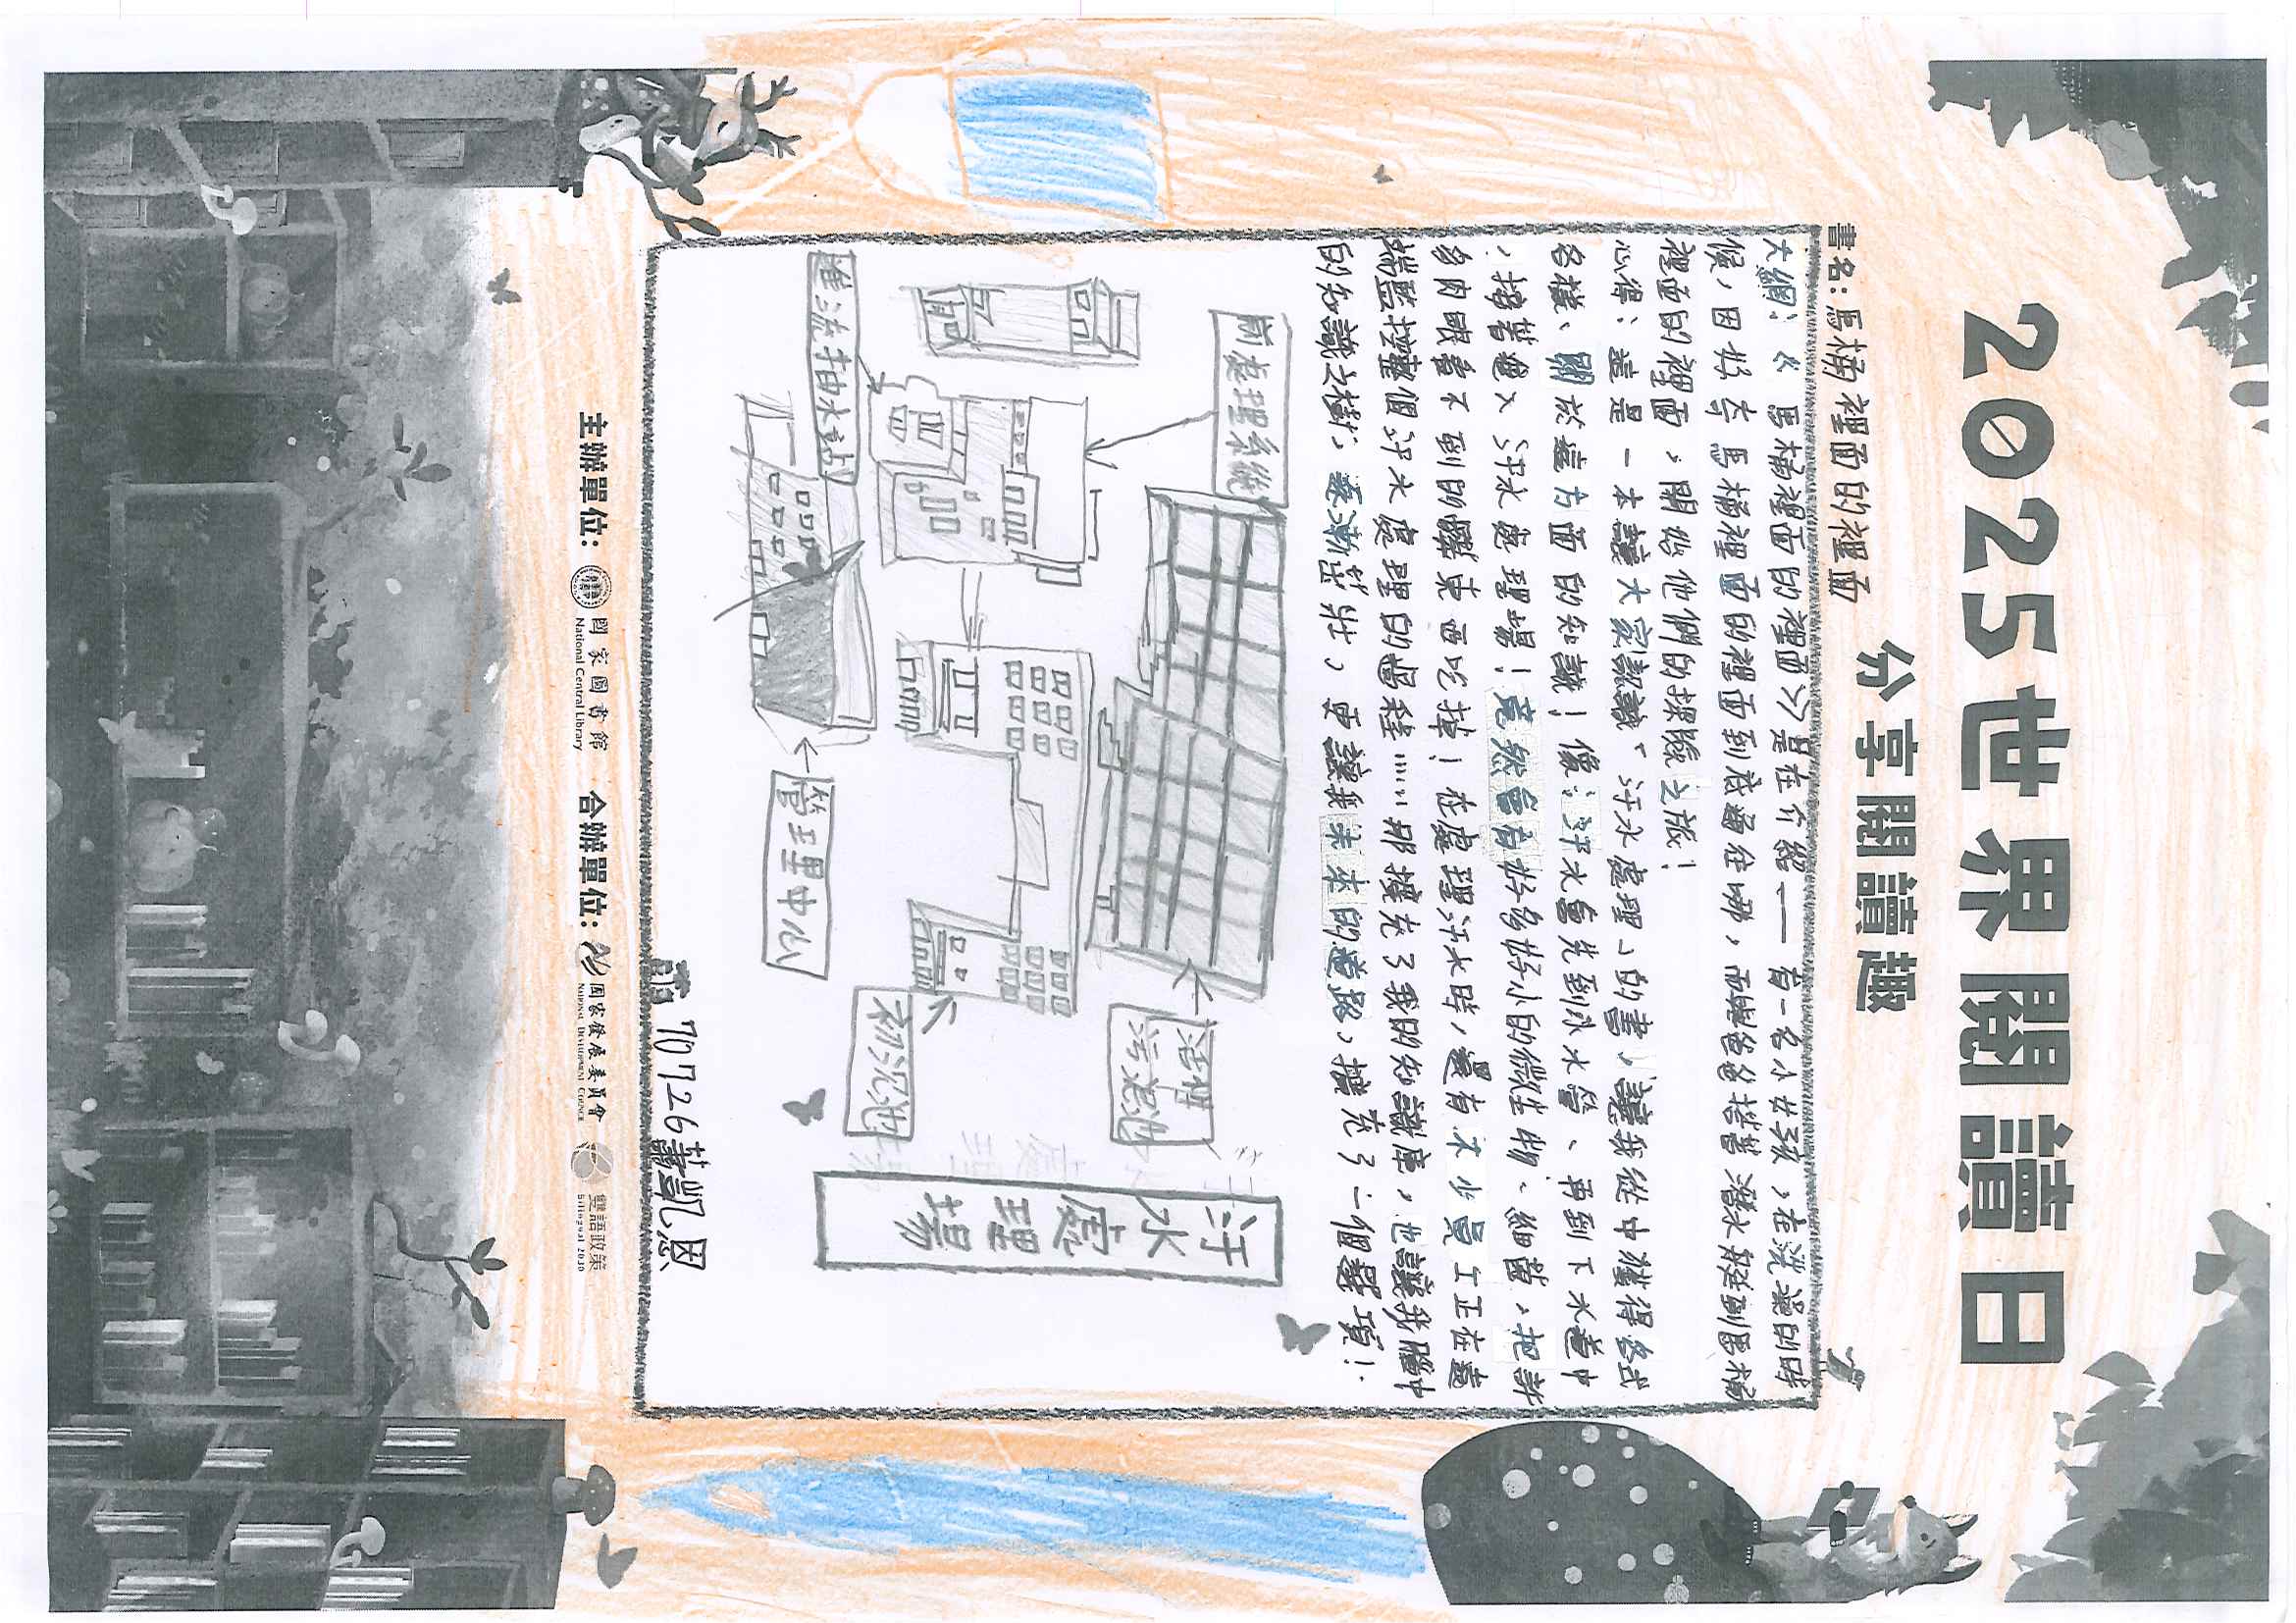 2025世界閱讀日
分享閱讀趣
書名：馬桶裡面的裡面
大綱：《馬桶裡面的裡面》是在介紹——有一名小女孩，在洗澡的時
候，因好奇馬桶裡面的裡面到底通往哪，而與爸爸搭著潛水艇到馬桶
裡面的裡面，開始他們的探險之旅！
心得：這是一本讓大家認識「汙水處理」的書，讓我從中獲得各式
各樣、關於這方面的知識！像：汙水會先到排水管、再到下水道中
，接著進入汙水處理場！竟然會有好多好小的微生物、細菌，把許
多肉眼看不到的髒東西吃掉！在處理汙水時，還有不少員工正在遠
端監控整個汙水處理的過程……那擴充了我的知識庫，也讓我腦中
的知識之樹，逐漸茁壯，更讓我未來的道路，擴充了一個選項！
前處理系統
進流抽水站
活性
污泥池
初沉池
管理中心
汙水
處理
場
70726蕭凱恩
主辦單位：國家圖書館 National Central Library 合辦單位：國家發展委員會 National Development Council 雙語政策 Bilingual 2030